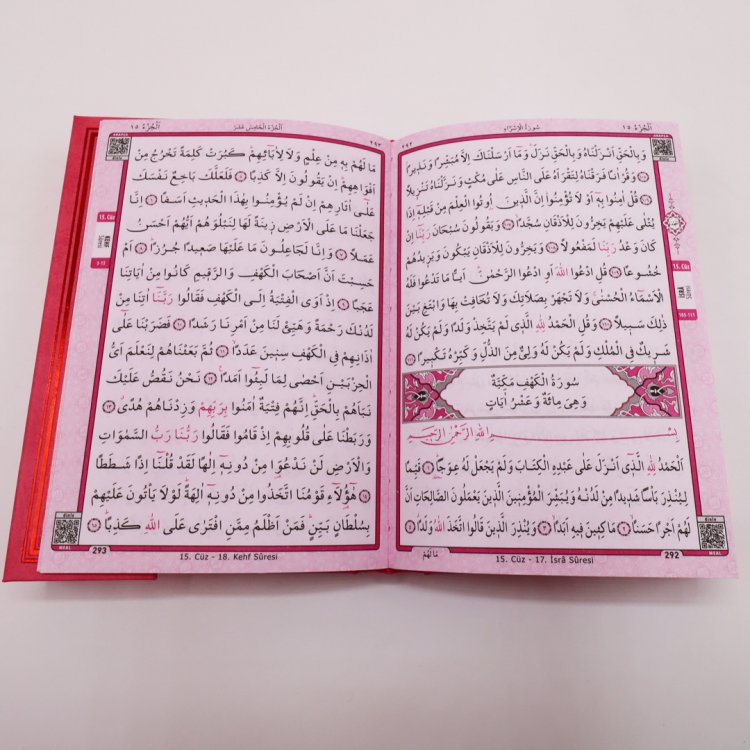 اَلْجُزْءُ ١٥
سُورَةُ الْاِسْرَاءِ
٢٩٢
وَبِالْحَقِّ اَنْزَلْنَاهُ وَبِالْحَقِّ نَزَلَ وَمَا اَرْسَلْنَاكَ اِلَّا مُبَشِّرًا وَنَذِيرًا
١٠٥ وَقُرْاٰنًا فَرَقْنَاهُ لِتَقْرَاَهُ عَلَى النَّاسِ عَلٰى مُكْثٍ وَنَزَّلْنَاهُ تَنْزِيلًا
١٠٦ قُلْ اٰمِنُوا بِهِ اَوْ لَا تُؤْمِنُوا اِنَّ الَّذِينَ اُوتُوا الْعِلْمَ مِنْ قَبْلِهِ اِذَا
يُتْلٰى عَلَيْهِمْ يَخِرُّونَ لِلْاَذْقَانِ سُجَّدًا ١٠٧ وَيَقُولُونَ سُبْحَانَ رَبِّنَا اِنْ
كَانَ وَعْدُ رَبِّنَا لَمَفْعُولًا ١٠٨ وَيَخِرُّونَ لِلْاَذْقَانِ يَبْكُونَ وَيَزِيدُهُمْ
خُشُوعًا ١٠٩ قُلِ ادْعُوا اللّٰهَ اَوِ ادْعُوا الرَّحْمٰنَ اَيًّا مَا تَدْعُوا فَلَهُ
الْاَسْمَاءُ الْحُسْنٰى وَلَا تَجْهَرْ بِصَلَاتِكَ وَلَا تُخَافِتْ بِهَا وَابْتَغِ بَيْنَ
ذٰلِكَ سَبِيلًا ١١٠ وَقُلِ الْحَمْدُ لِلّٰهِ الَّذِي لَمْ يَتَّخِذْ وَلَدًا وَلَمْ يَكُنْ لَهُ
شَرِيكٌ فِي الْمُلْكِ وَلَمْ يَكُنْ لَهُ وَلِيٌّ مِنَ الذُّلِّ وَكَبِّرْهُ تَكْبِيرًا ١١١
سُورَةُ الْكَهْفِ مَكِّيَّةٌ
وَهِيَ مِائَةٌ وَعَشْرُ اٰيَاتٍ
بِسْمِ اللّٰهِ الرَّحْمٰنِ الرَّحِيمِ
اَلْحَمْدُ لِلّٰهِ الَّذِي اَنْزَلَ عَلٰى عَبْدِهِ الْكِتَابَ وَلَمْ يَجْعَلْ لَهُ عِوَجًا ١ قَيِّمًا
لِيُنْذِرَ بَاْسًا شَدِيدًا مِنْ لَدُنْهُ وَيُبَشِّرَ الْمُؤْمِنِينَ الَّذِينَ يَعْمَلُونَ الصَّالِحَاتِ اَنَّ
لَهُمْ اَجْرًا حَسَنًا ٢ مَاكِثِينَ فِيهِ اَبَدًا ٣ وَيُنْذِرَ الَّذِينَ قَالُوا اتَّخَذَ اللّٰهُ وَلَدًا ٤
مَا لَهُمْ
15. Cüz
İSRÂ
Sûresi
105-111
MEAL
292
15. Cüz - 17. İsrâ Sûresi
اَلْجُزْءُ ١٥
اَلْجُزْءُ الْخَامِسُ عَشَرَ
٢٩٣
مَا لَهُمْ بِهِ مِنْ عِلْمٍ وَلَا لِاٰبَائِهِمْ كَبُرَتْ كَلِمَةً تَخْرُجُ مِنْ
اَفْوَاهِهِمْ اِنْ يَقُولُونَ اِلَّا كَذِبًا ٥ فَلَعَلَّكَ بَاخِعٌ نَفْسَكَ
عَلٰى اٰثَارِهِمْ اِنْ لَمْ يُؤْمِنُوا بِهٰذَا الْحَدِيثِ اَسَفًا ٦ اِنَّا
جَعَلْنَا مَا عَلَى الْاَرْضِ زِينَةً لَهَا لِنَبْلُوَهُمْ اَيُّهُمْ اَحْسَنُ
عَمَلًا ٧ وَاِنَّا لَجَاعِلُونَ مَا عَلَيْهَا صَعِيدًا جُرُزًا ٨ اَمْ
حَسِبْتَ اَنَّ اَصْحَابَ الْكَهْفِ وَالرَّقِيمِ كَانُوا مِنْ اٰيَاتِنَا
عَجَبًا ٩ اِذْ اَوَى الْفِتْيَةُ اِلَى الْكَهْفِ فَقَالُوا رَبَّنَا اٰتِنَا مِنْ
لَدُنْكَ رَحْمَةً وَهَيِّئْ لَنَا مِنْ اَمْرِنَا رَشَدًا ١٠ فَضَرَبْنَا عَلٰى
اٰذَانِهِمْ فِي الْكَهْفِ سِنِينَ عَدَدًا ١١ ثُمَّ بَعَثْنَاهُمْ لِنَعْلَمَ اَيُّ
الْحِزْبَيْنِ اَحْصٰى لِمَا لَبِثُوا اَمَدًا ١٢ نَحْنُ نَقُصُّ عَلَيْكَ
نَبَاَهُمْ بِالْحَقِّ اِنَّهُمْ فِتْيَةٌ اٰمَنُوا بِرَبِّهِمْ وَزِدْنَاهُمْ هُدًى ١٣
وَرَبَطْنَا عَلٰى قُلُوبِهِمْ اِذْ قَامُوا فَقَالُوا رَبُّنَا رَبُّ السَّمٰوَاتِ
وَالْاَرْضِ لَنْ نَدْعُوَا مِنْ دُونِهِ اِلٰهًا لَقَدْ قُلْنَا اِذًا شَطَطًا
١٤ هٰؤُلَاءِ قَوْمُنَا اتَّخَذُوا مِنْ دُونِهِ اٰلِهَةً لَوْلَا يَاْتُونَ عَلَيْهِمْ
بِسُلْطَانٍ بَيِّنٍ فَمَنْ اَظْلَمُ مِمَّنِ افْتَرٰى عَلَى اللّٰهِ كَذِبًا ١٥
15. Cüz
KEHF
Sûresi
5-15
MEAL
293
15. Cüz - 18. Kehf Sûresi